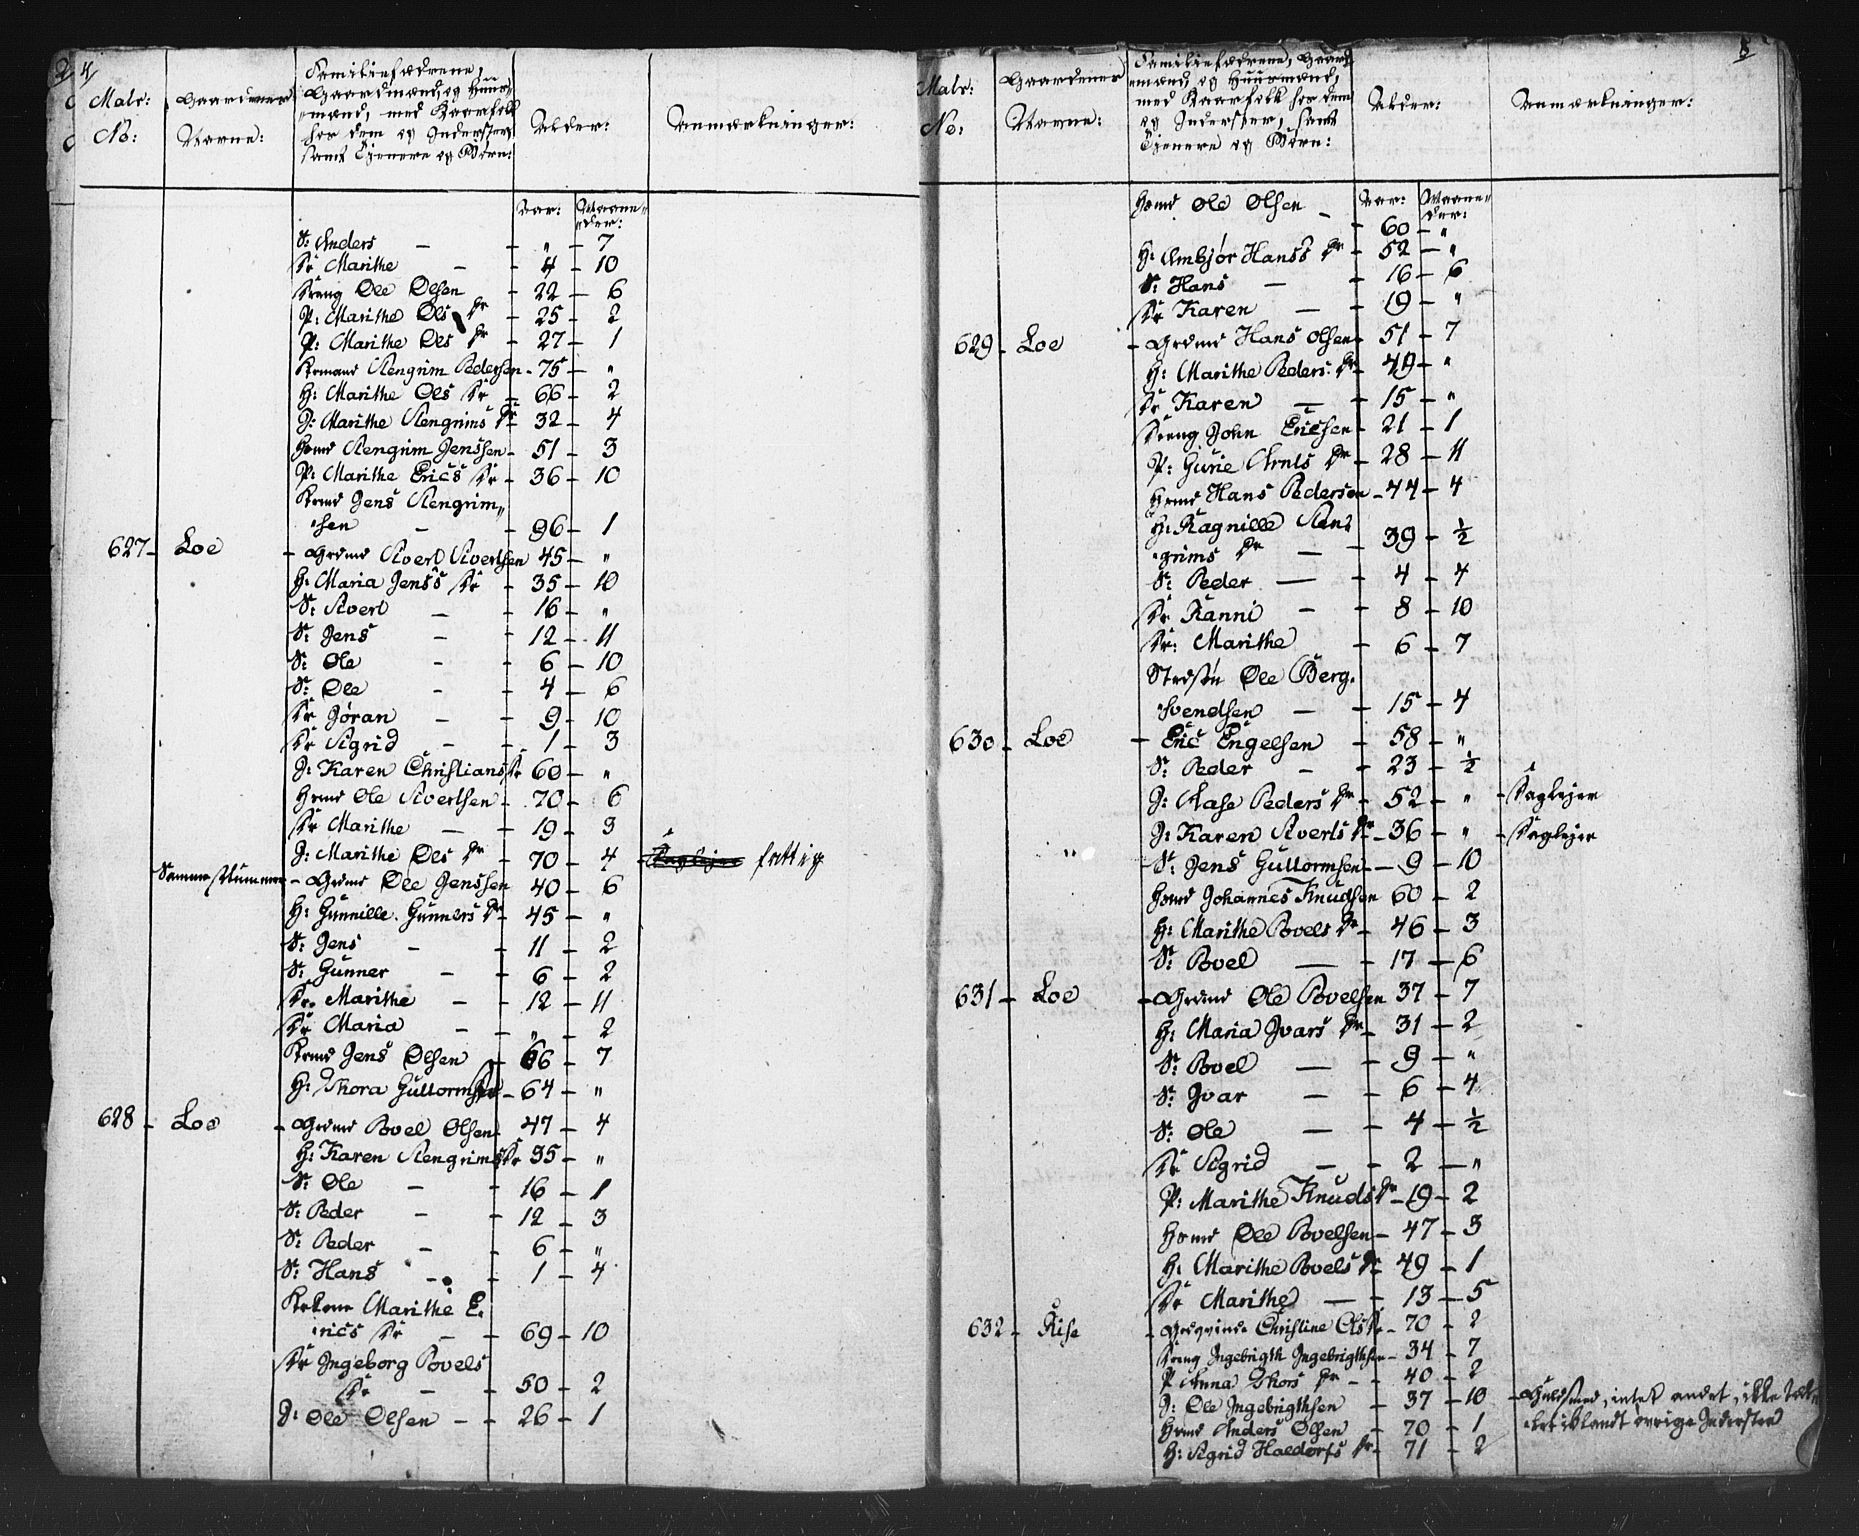 4
Matr: No:
Gaardenes Navne:
Familiefædrene,
Gaardmænd, og Huus-
mænd, med Kaarfolk
hos dem og Inderster,
samt Tjenere og Børn:
Alder:
Anmærkninger:
Aar: Maane-
der:
S: Anders — - " - 7
Dr Marithe — - 4 - 10
Dreng Ole Olsen - 22 - 6
P: Marithe Ols Dr - 25 - 2
P: Marithe Ols Dr - 27 - 1
Krmand Stengrim Pedersen - 75 - "
H: Marithe Ols Dr - 66 - 2
I: Marithe Stengrims Dr - 32 - 4
Hsmd Stengrim Jenssen - 51 - 3
P: Marithe Erics Dr - 36 - 10
Krmd Jens Stengrim-
sen — - 96 - 1
627 - Loe - Grdmd Sivert Sivertsen 45 - "
H: Maria Jens's Dr - 35 - 10
S: Sivert — - 16 - "
S: Jens — - 12 - 11
S: Ole - - 6 - 10
S: Ole - - 4 - 6
Dr Jøran — - 9 - 10
Dr Sigrid — - 1 - 3
I: Karen Christians Dr 60 - "
Hsmd Ole Sivertsen - 70 - 6
Dr Marithe — - 19 - 3
I: Marithe Ols Dr - 70 - 4 - fattig
Samme Nummer - Grdmd Ole Jenssen 40 - 6
H: Gunnille Gunners Dr - 45 - "
S: Jens — - 11 - 2
S: Gunner — - 6 - 2
Dr. Marithe — - 12 - 11
Dr Maria — - " - 2
Krmd Jens Olsen - 66 - 7
H: Thora Guttorms Dr - 64 - "
628 - Loe - Grdmd Povel Olsen - 47 - 4
H: Karen Stengrims Dr 35 - "
S: Ole — - 16 - 1
S: Peder — - 12 - 3
S: Peder — - 6 - "
S: Hans — - 1 - 4
Krkone Marithe E.
rics Dr — - 69 - 10
Dr Ingeborg Povels
Dr — - 50 - 2
I: Ole Olsen - - 26 - 1
8
Matr: No:
Gaardenes Navne:
Familiefædrene, Gaard-
mænd, og Huusmænd,
med Kaarfolk hos dem
og Inderster, samt
Tjenere og Børn:
Alder:
Anmærkninger:
Aar: Maane-
der:
Hsmd Ole Olsen - 60 - "
H: Ambjør Hans's Dr - 52 - "
S: Hans — - 16 - 6
Dr Karen — - 19 - "
629 - Loe - Grdmd Hans Olsen - 51 - 7
H: Marithe Peders: Dr - 49 - "
Dr Karen — - 15 - "
Dreng John Ericsen - 21 - 1
P: Gurie Arnts Dr - 28 - 11
Hsmd Hans Pedersen - 44 - 4
H: Ragnille Sten-
grims Dr — - 39 - ½
S: Peder — - 4 - 4
Dr Fanni — - 8 - 10
Dr: Marithe - 6 - 7
Stedsøn Ole Berg.
svendsen — - 15 - 4
630 - Loe - Eric Engelsen - 58 - "
S: Peder — - 23 - ½
I: Aase Peders Dr - 52 - " - Daglejer
I: Karen Siverts Dr - 36 - " - Daglejer
" - S: Jens Guttormsen - 9 - 10
Hsmd Johannes Knudsen 60 - 2
H: Marithe Povels Dr - 46 - 3
S: Povel — - 17 - 6
631 - Loe - Grdmd Ole Povelsen 37 - 7
H: Maria Ivars Dr - 31 - 2
S: Povel — - 9 - "
S: Ivar — - 6 - 4
S: Ole — - 4 - ½
Dr Sigrid — - 2 - "
P: Marithe Knuds Dr - 19 - 2
Hsmd Ole Povelsen - 47 - 3
H: Marithe Povels Dr - 49 - 1
Dr Marithe — - 13 - 5
632 - Rise - Grdqvinde Christine Ols Dr - 70 - 2
Dreng Ingebrigth Ingebrigthsen - 34 - 7
P: Anna Thors Dr - - 40 - 2
I: Ole Ingebrigthsen - 37 - 10 - Guldsmed, intet andet, ikke talt
iblandt øvrige Inderster
Hsmd Anders Olsen - 70 - 1
H: Sigrid Haldors Dr - 71 - 2